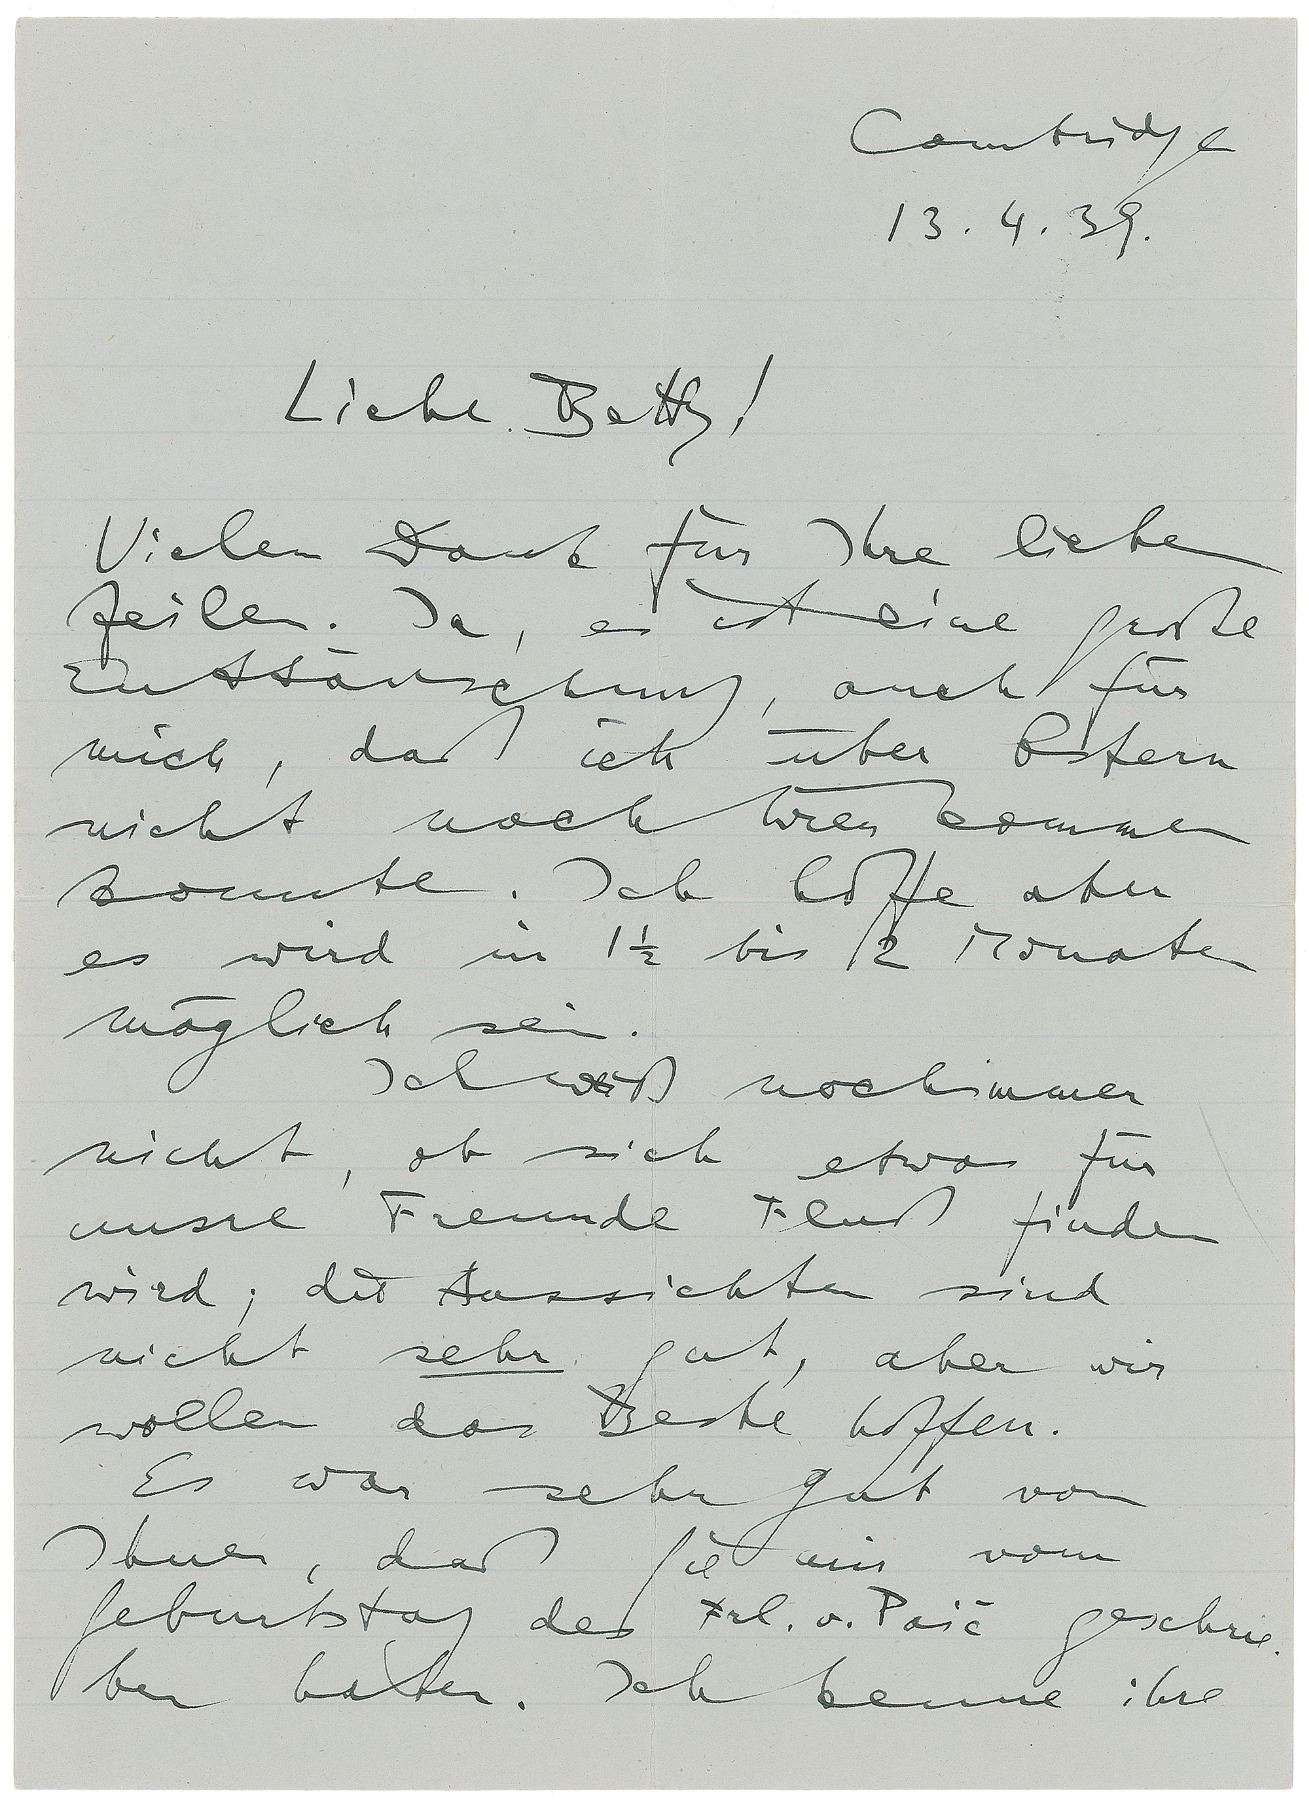 Cambridge
13.4.39.
Liebe Betty!
Vielen Dank für Ihre lieben
Zeilen. Ja, es ist eine große
Enttäuschung, auch für
mich, daß ich über Ostern
nicht nach Wien kommen
konnte. Ich hoffe aber
es wird in 1½ bis 2 Monaten
möglich sein.
Ich weiß nochimmer
nicht, ob sich etwas für
unsre Freunde Fluß finden
wird; die Aussichten sind
nicht sehr gut, aber wir
wollen das Beste hoffen.
Es war sehr gut von
Ihnen, daß Sie mir vom
Geburtstag des Frl. v. Paić geschrie-
ben haben. Ich kenne ihre